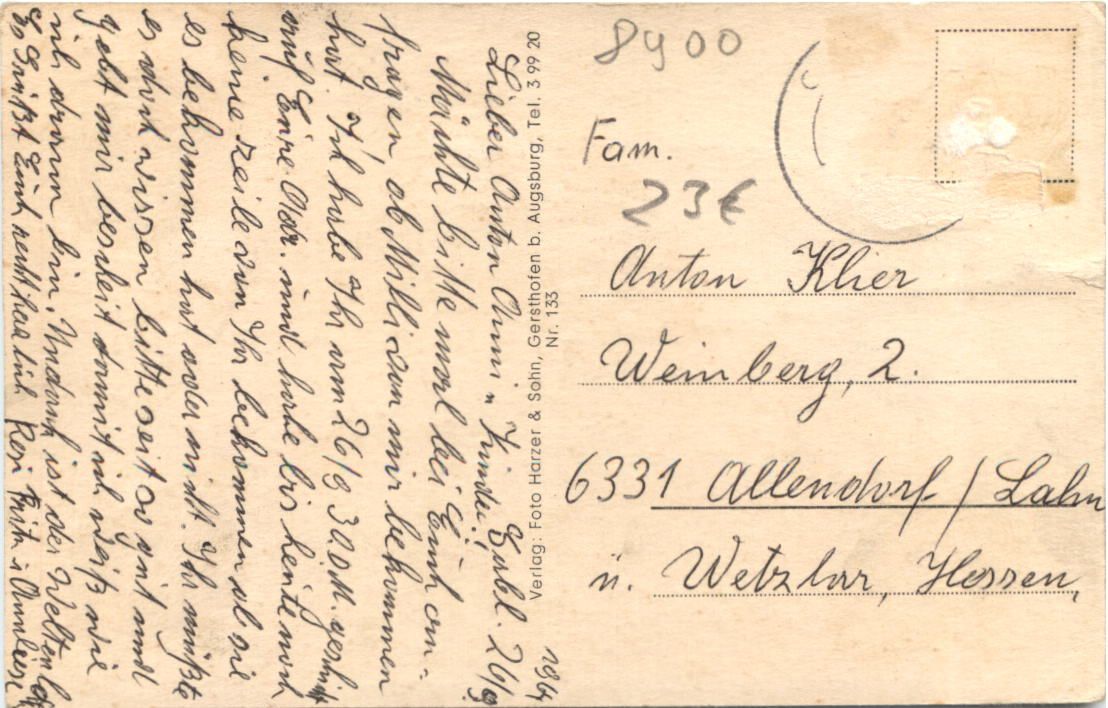 Lieber Anton Anni u Kinder!
Möchte bitte mal bei Euch an-
fragen, ob Milli von mir bekommen
hat. Ich habe Ihr am 26/8 300 M. geschickt
auf Eure Adr. und habe bis heute noch
keine zeile von Ihr bekommen ob sie
es bekommen hat oder nicht. Ihr müßte
es dort wissen bitte seit so gut und
gebt mir bescheit damit ich weiß wie
ich daran bin. Undank ist der Welten
Es Grüßt Euch recht herzlich Resi Fritz u Annliese
26/9
1964
Verlag: Foto Harzer & Sohn, Gersthofen b. Augsburg, Tel. 3 99 20
Nr. 133
8900
Fam.
23€
Anton Klier
Weinberg, 2.
6331 Allendorf / Lahn
ü. Wetzlar, Hessen,